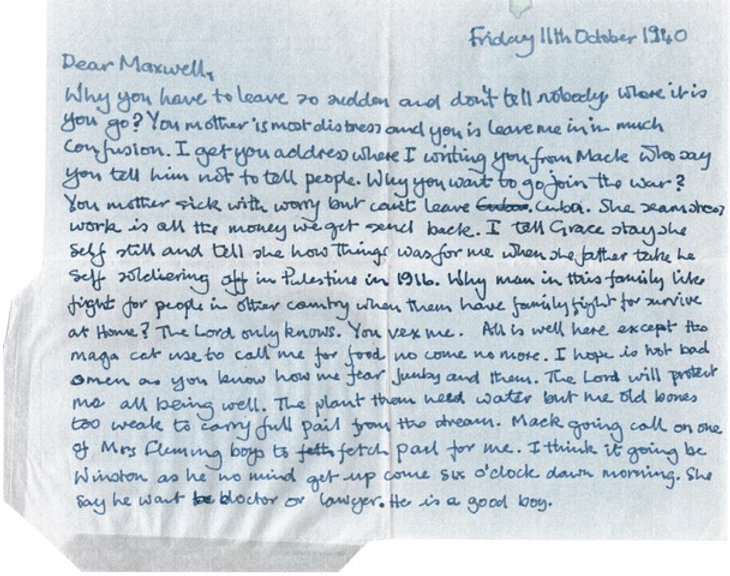 Friday 11th October 1940
Dear Maxwell,
Why you have to leave so sudden and don't tell nobody where it is
you go? You mother is most distress and you is leave me in in much
confusion. I get you address where I writing you from Mack who say
you tell him not to tell people. Why you want to go join the war?
You mother sick with worry but can't leave Cuba. Cuba. She seamstress
work is all the money we get send back. I tell Grace stay she
self still and tell she how things was for me when she father take he
self soldiering off in Palestine in 1916. Why man in this family like
fight for people in other country when them have family fight for survive
at Home? The Lord only knows. You vex me. All is well here except the
maga cat use to call me for food no come no more. I hope is not bad
omen as you know how me fear Jumby and them. The Lord will protect
me all being well. The plant them need water but me old bones
too weak to carry full pail from the stream. Mack going call on one
of Mrs Fleming boys to feth fetch pail for me. I think it going be
Winston as he no mind get up come six o'clock dawn morning. She
say he want be doctor or lawyer. He is a good boy.